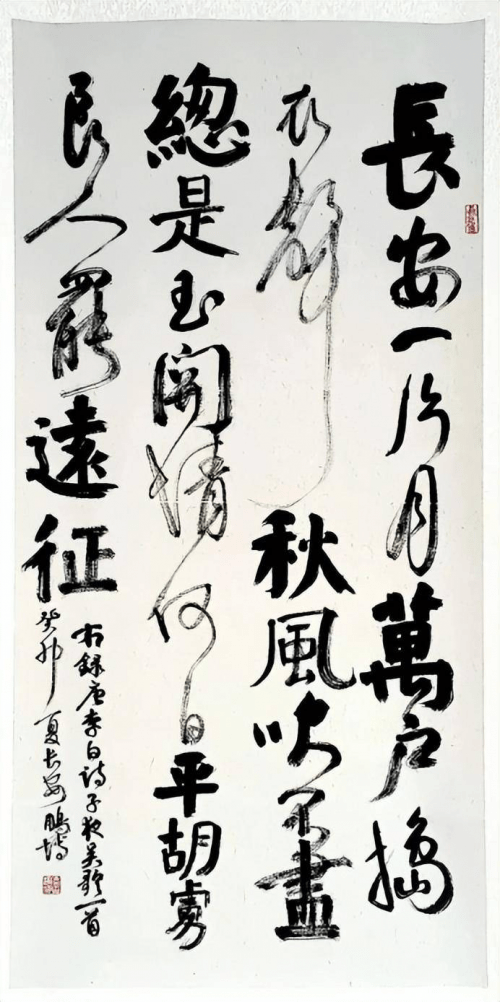 長安一片月萬戶搗
衣聲秋風吹不盡
總是玉關情何日平胡虜
良人罷遠征
右録唐李白詩子夜吳歌一首
癸卯夏長安鵬